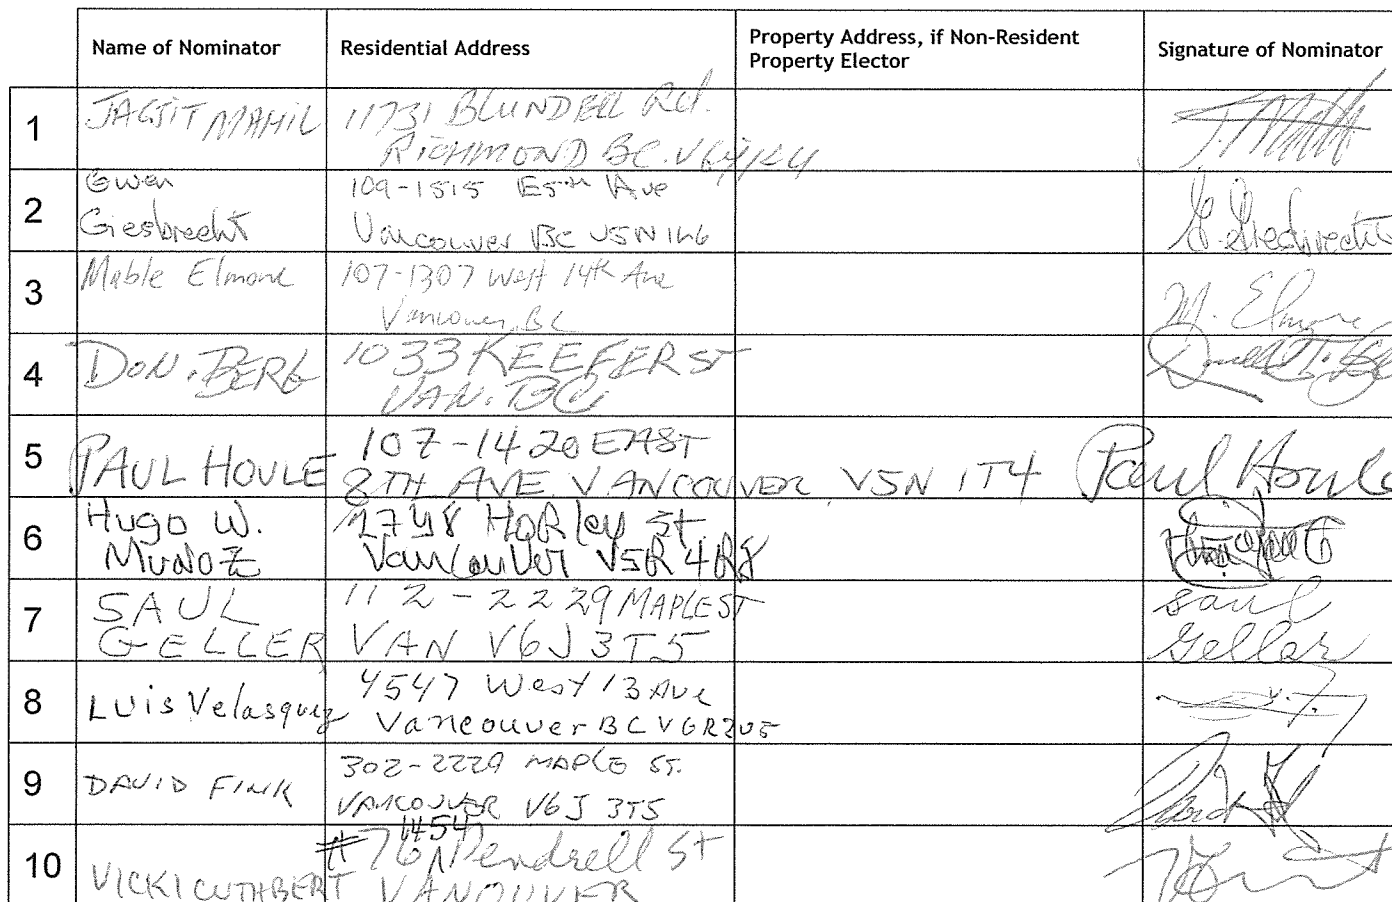 Name of Nominator
Residential Address
Property Address, if Non-Resident
Property Elector
Signature of Nominator
1
JAGJIT MAHIL
11731 BLUNDELL Rd.
RICHMOND BC.
2
Gwen
Giesbrecht
109-1515 E5th Ave
Vancouver BC V5N 1L6
G. Giesbrecht
3
Mable Elmore
107-1307 West 14th Ave
Vancouver, BC
M. Elmore
4
DON. BERG
1033 KEEFER ST
VAN. BC
5
PAUL HOULE
107-1420 EAST
8TH AVE VANCOUVER V5N 1T4
Paul Houle
6
Hugo W.
MUñOZ
HoRley St.
VanCouVer V5R 4R8
7
SAUL
GELLER
112-2229 MAPLE ST
VAN V6J 3T5
Saul
Geller
8
LUis Velasquez
4547 West 13 Ave
Vancouver BC V6R2V5
9
DAVID FINK
302-2229 MAPLE ST.
VANCOUVER V6J 3T5
10
VICKI CUTHBERT
1454
#76 Pendrell St
VANCOUVER